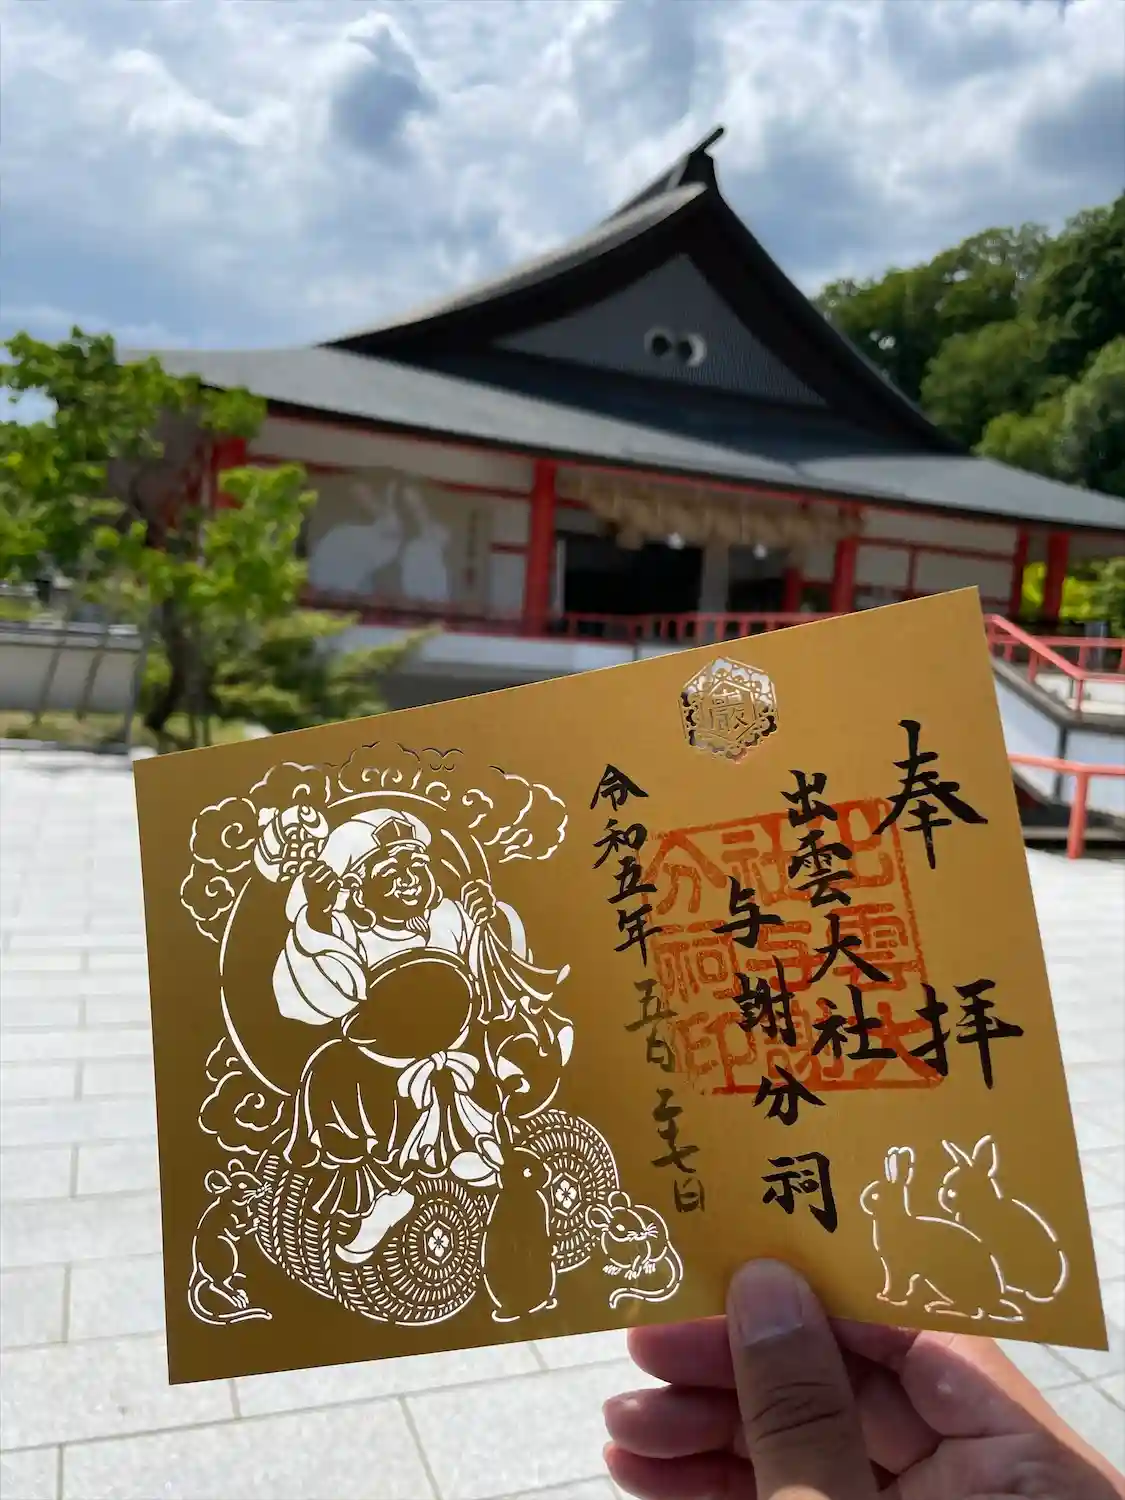 嚴
奉拝
出雲大社
与謝分祠
出雲大
社与謝
分祠印
令和五年五月二十七日